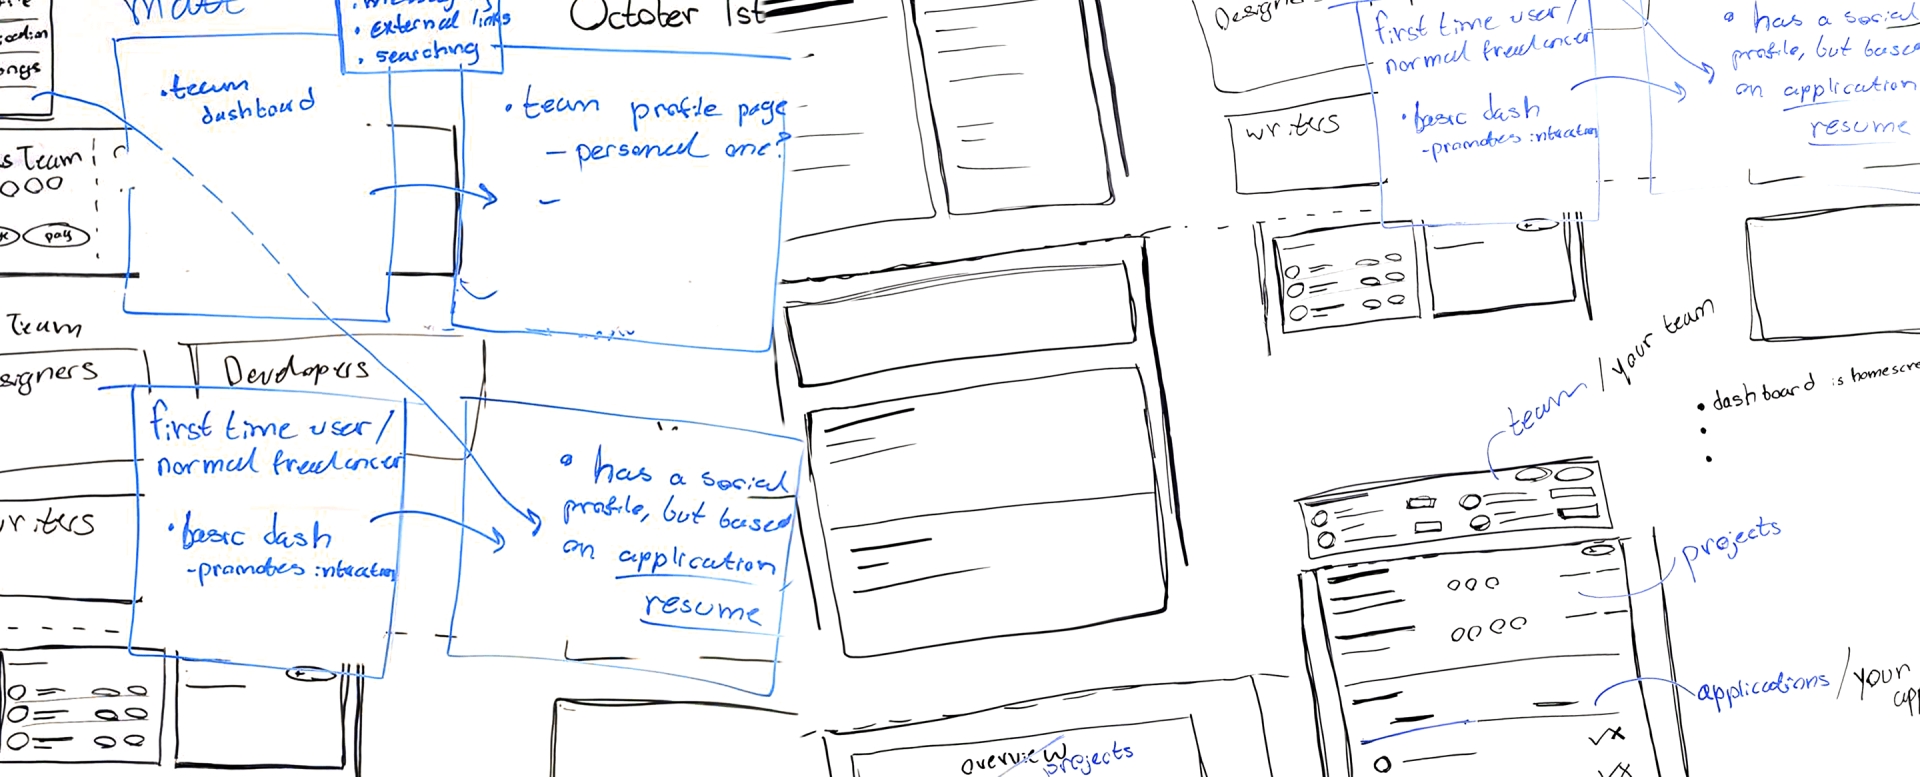 Matt
• external links
• searching
October 1st
• team
dashboard
• team profile page
– personal one?
–
s Team
pay
Team
signers
Developers
first time user /
normal freelancer
• basic dash
- promotes
• has a social
profile, but based
on application
resume
writers
first time user /
normal freelancer
• basic dash
- promotes
• has a social
profile, but based
on application
resume
team / your team
• dashboard is homescre
•
•
projects
applications / your
app
overview
projects